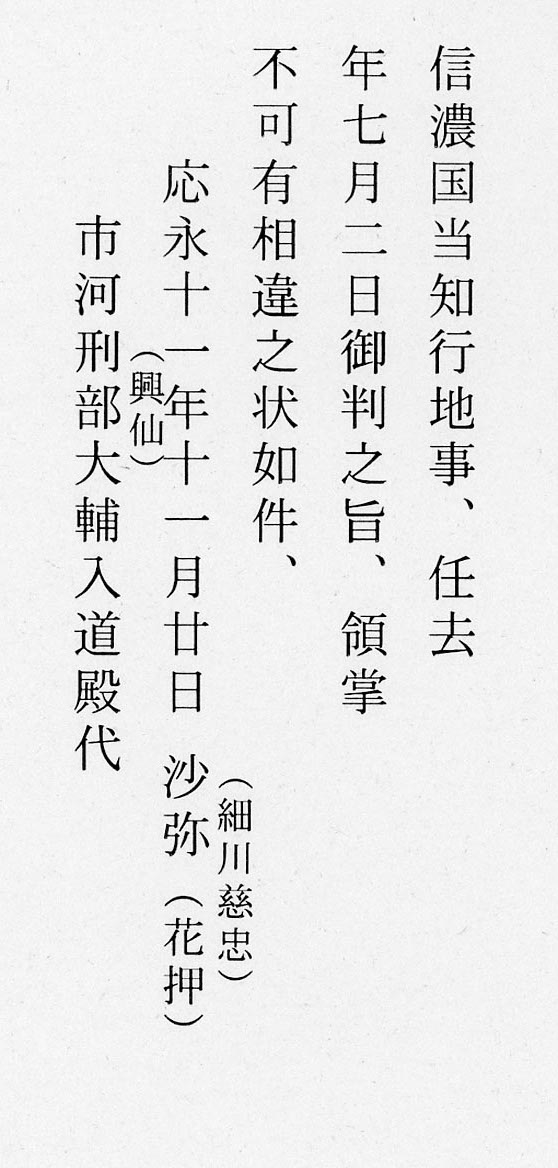 信濃国当知行地事、任去
年七月二日御判之旨、領掌
不可有相違之状如件、
（細川慈忠）
応永十一年十一月廿日　沙弥（花押）
（興仙）
市河刑部大輔入道殿代